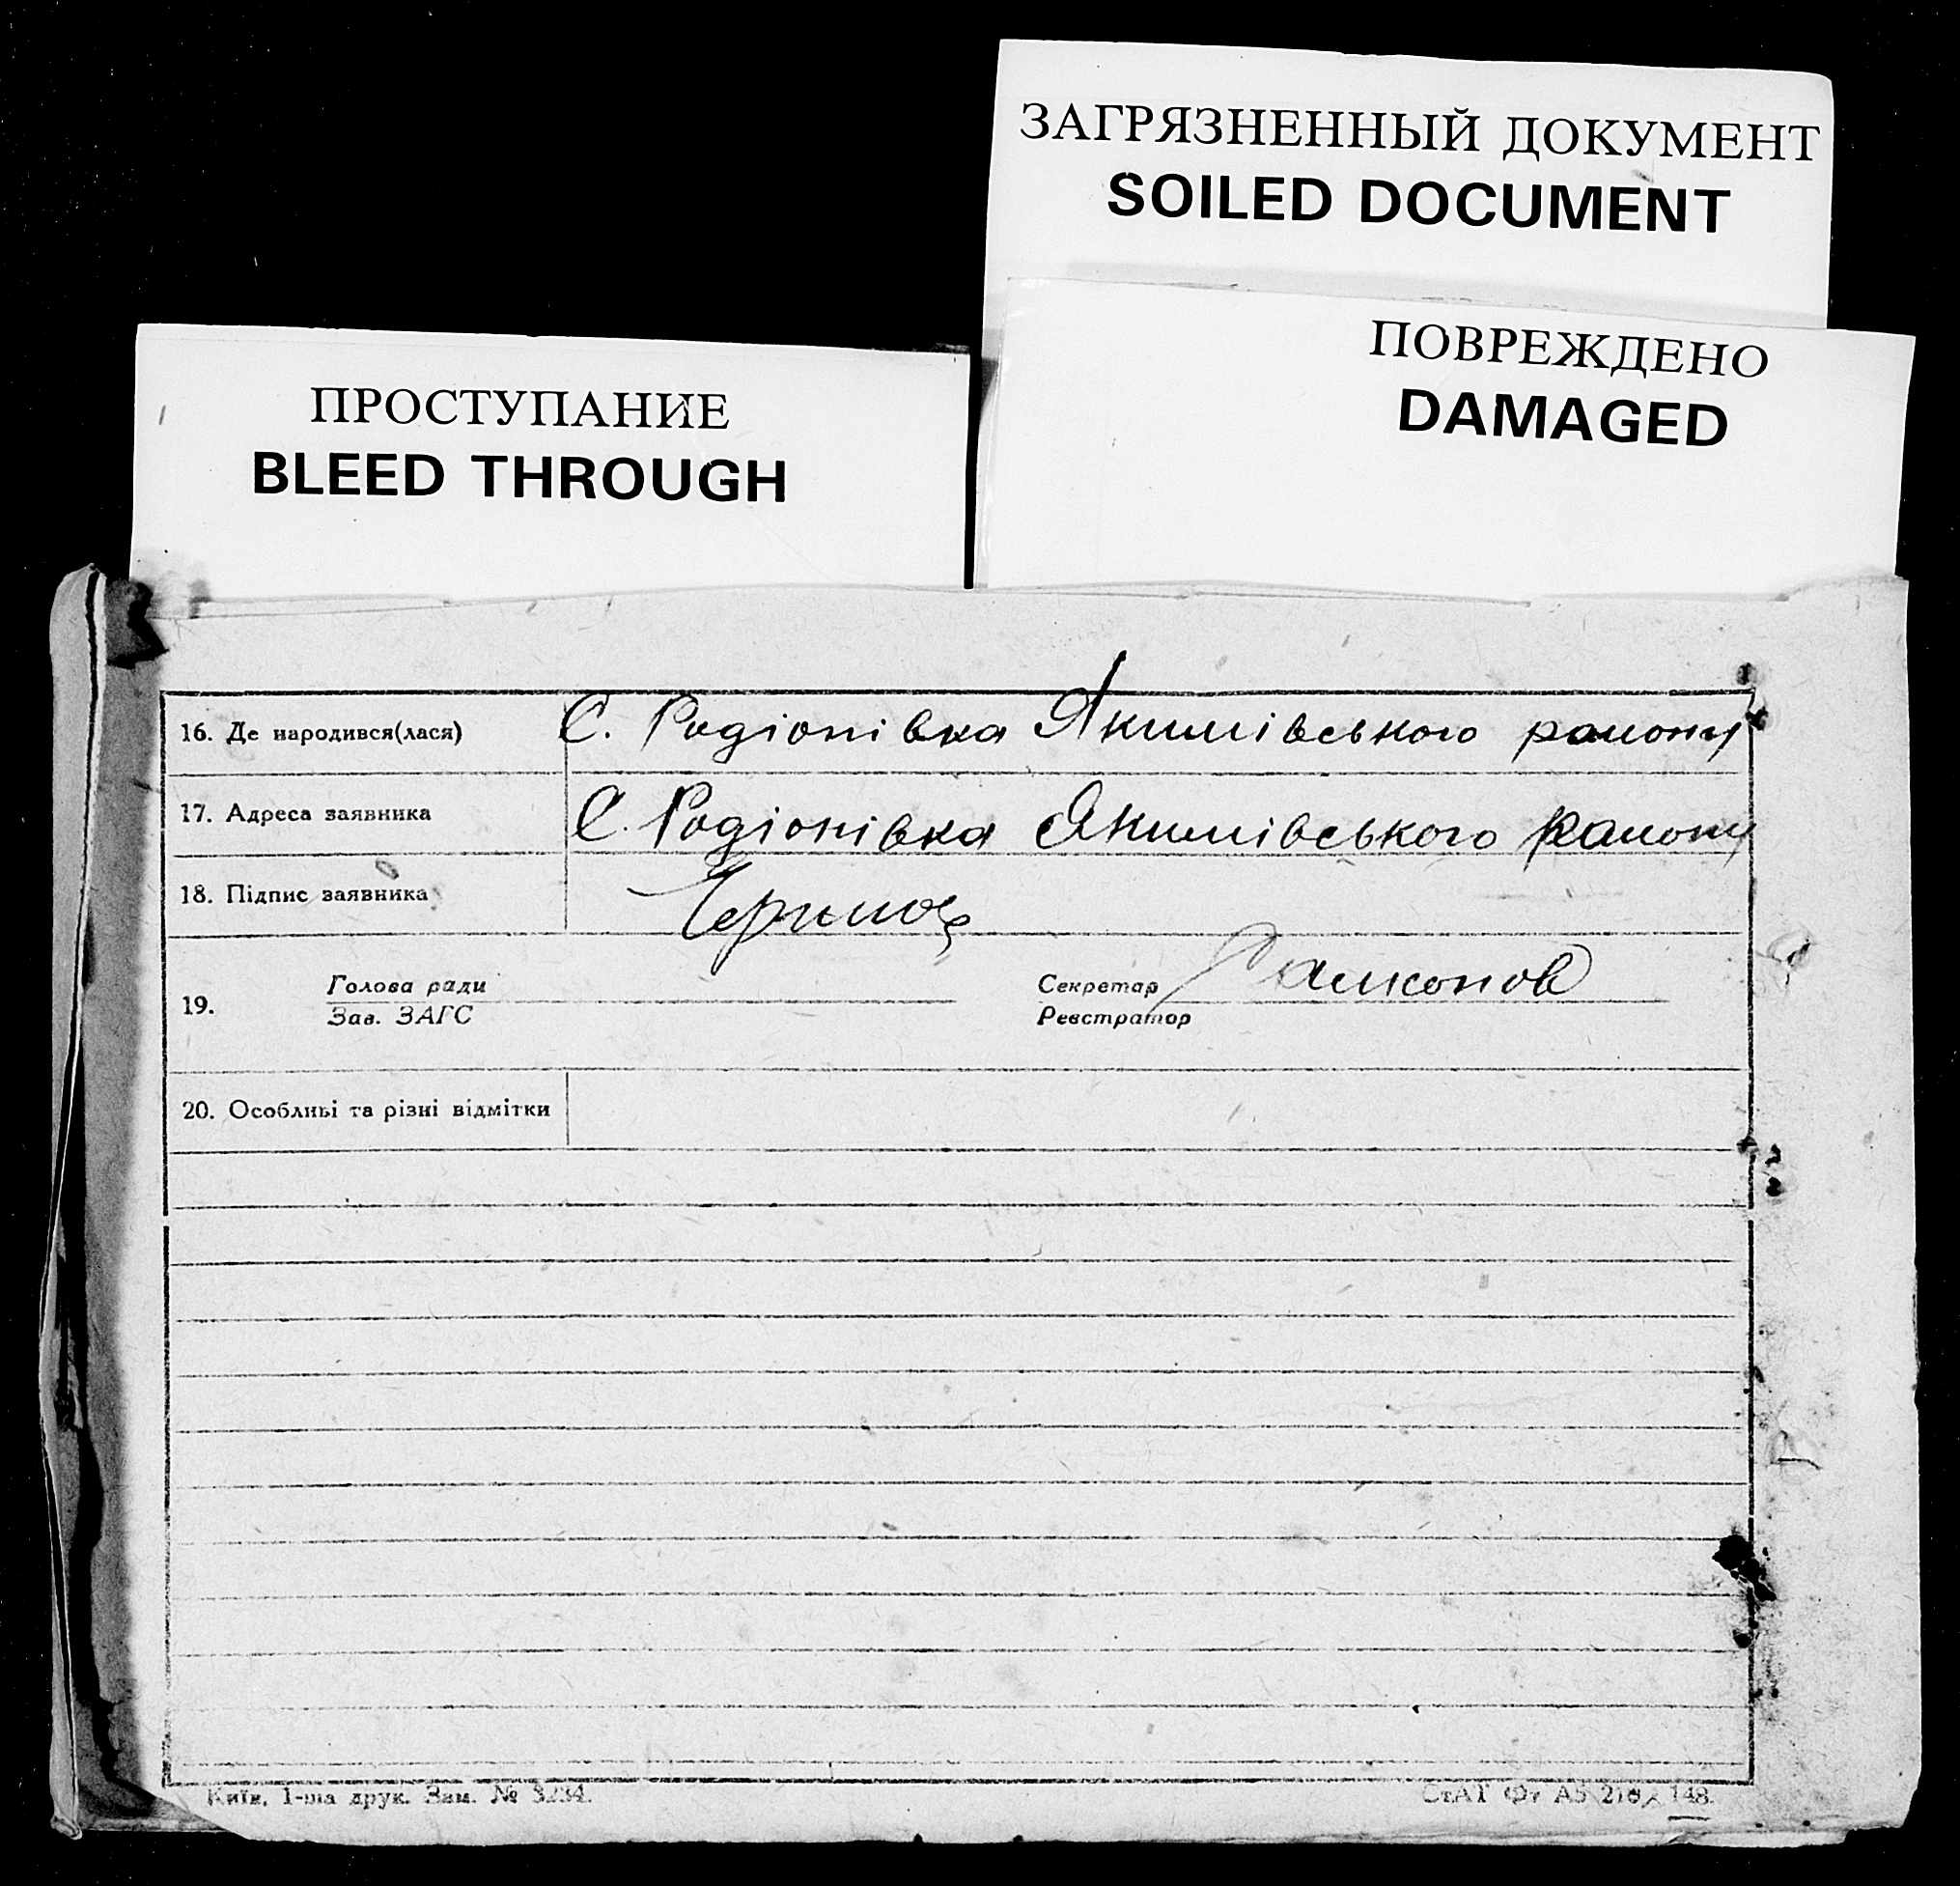 ЗАГРЯЗНЕННЫЙ ДОКУМЕНТ
SOILED DOCUMENT
ПОВРЕЖДЕНО
DAMAGED
ПРОСТУПАНИЕ
BLEED THROUGH
16. Де народився(лася) С. Родіонівка Якимівського району
17. Адреса заявника С. Родіонівка Якимівського району
18. Підпис заявника
19. Голова ради Секретар
Зав. ЗАГС Реєстратор
20. Особливі та різні відмітки
Київ, 1-ша друк. Зам. № 3234.
148.